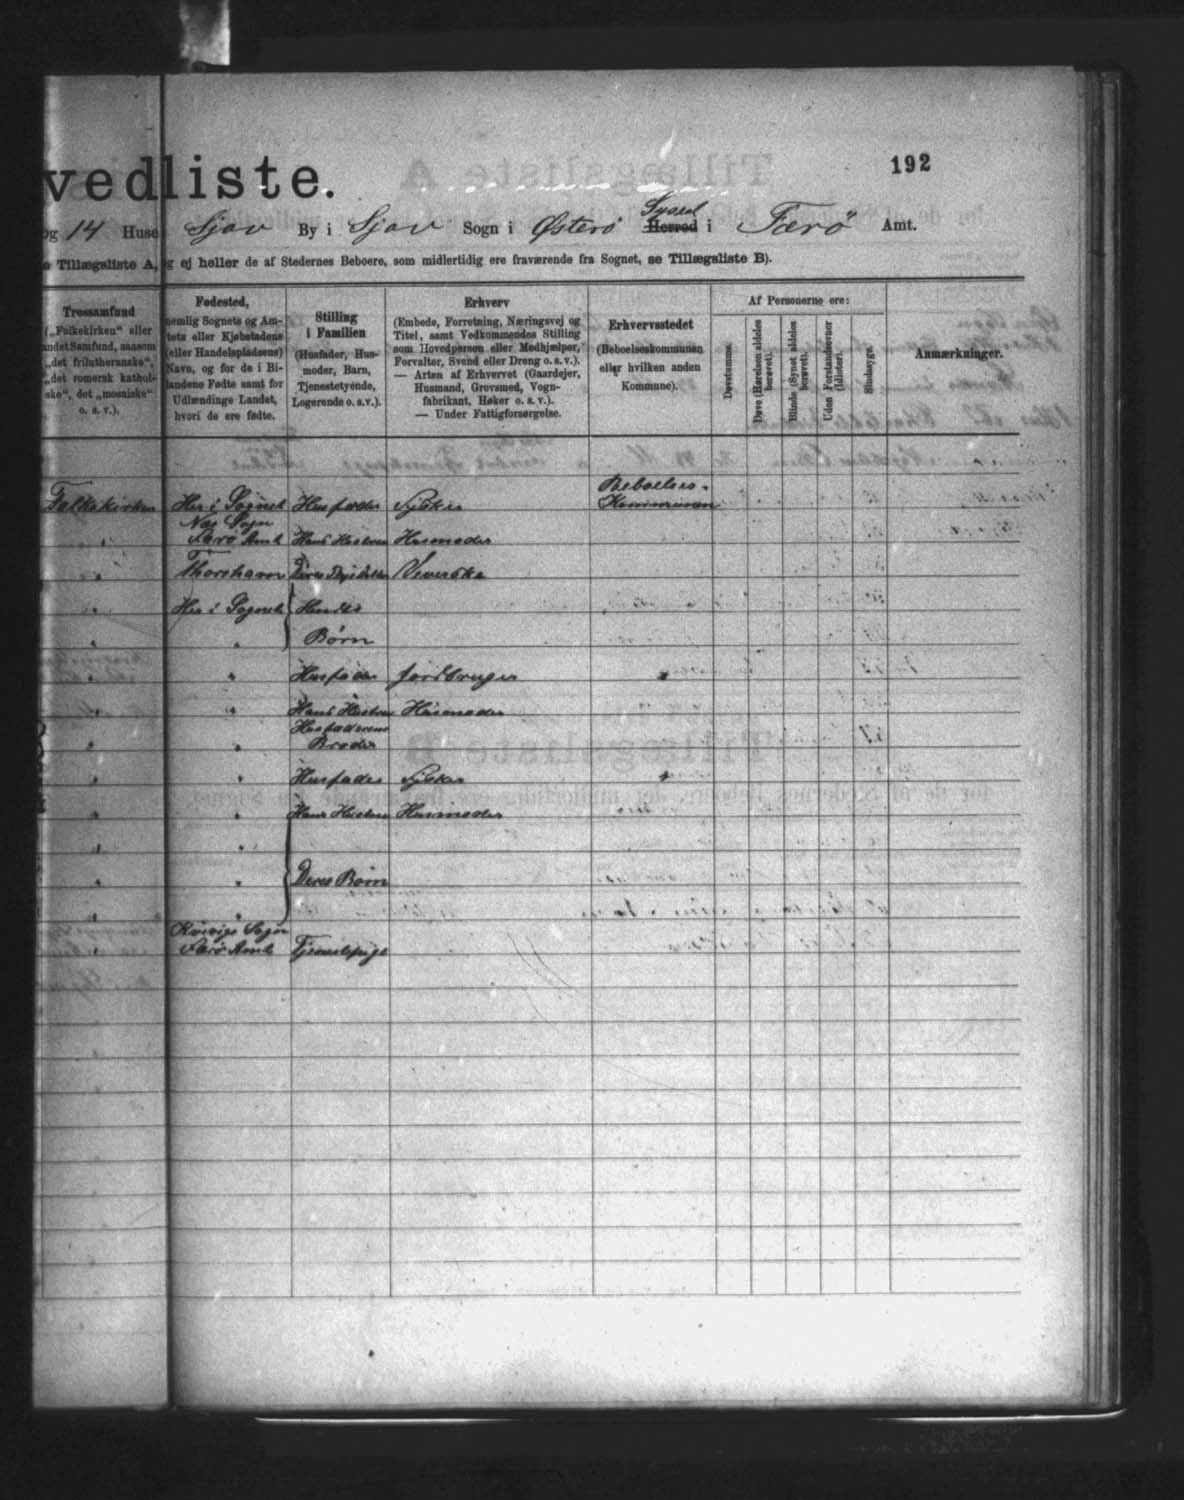 vedliste.
192
og 14 Huse Sjov By i Sjov Sogn i Østerø Syssel Herred i Færø Amt.
e Tillægsliste A, og ej heller de af Stedernes Beboere, som midlertidig ere fraværende fra Sognet, se Tillægsliste B).
Trossamfund
(„Folkekirken“ eller
andet Samfund, saasom
„det frilutheranske“,
„det romersk kathol-
ske“, det „mosaiske“
o. s. v.).
Fødested,
nemlig Sognets og Am-
tets eller Kjøbstadens
(eller Handelspladsens)
Navn, og for de i Bi-
landene Fødte samt for
Udlændinge Landet,
hvori de ere fødte.
Stilling
i Familien
(Husfader, Hus-
moder, Barn,
Tjenestetyende,
Logerende o. s. v.).
Erhverv
(Embede, Forretning, Næringsvej og
Titel, samt Vedkommendes Stilling
som Hovedperson eller Medhjælper,
Forvalter, Svend eller Dreng o. s. v.).
— Arten af Erhvervet (Gaardejer,
Husmand, Grovsmed, Vogn-
fabrikant, Høker o. s. v.).
— Under Fattigforsørgelse.
Erhvervsstedet
(Beboelseskommunen
eller hvilken anden
Kommune).
Af Personerne ere:
Døvstumme.
Døve (Hørelsen aldeles
berøvet).
Blinde (Synet aldeles
berøvet).
Uden Forstandsevner
(Idioter).
Sindssyge.
Anmærkninger.
Folkekirken Her i Sognet Husfader Fisker Beboelses-
Kommunen
" Næs Sogn
Færø Amt Hans Hustru Husmoder
" Thorshavn Deres Væverske
" Her i Sognet Hendes
" " Børn
" Husfader Jordbruger "
" Hans Hustru Husmoder
" " Husfaderens
Broder
" " Husfader Fisker "
" " Hans Hustru Husmoder
" "
" " Deres Børn
" "
Kvivigs Sogn
Færø Amt Tjenestepige